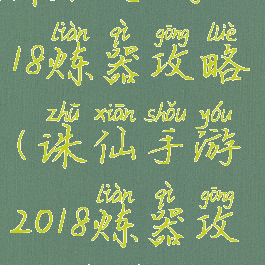 liàn qì gōng lüè
18炼器攻略
zhū xiān shǒu yóu
(诛仙手游
liàn qì gōng
2018炼器攻